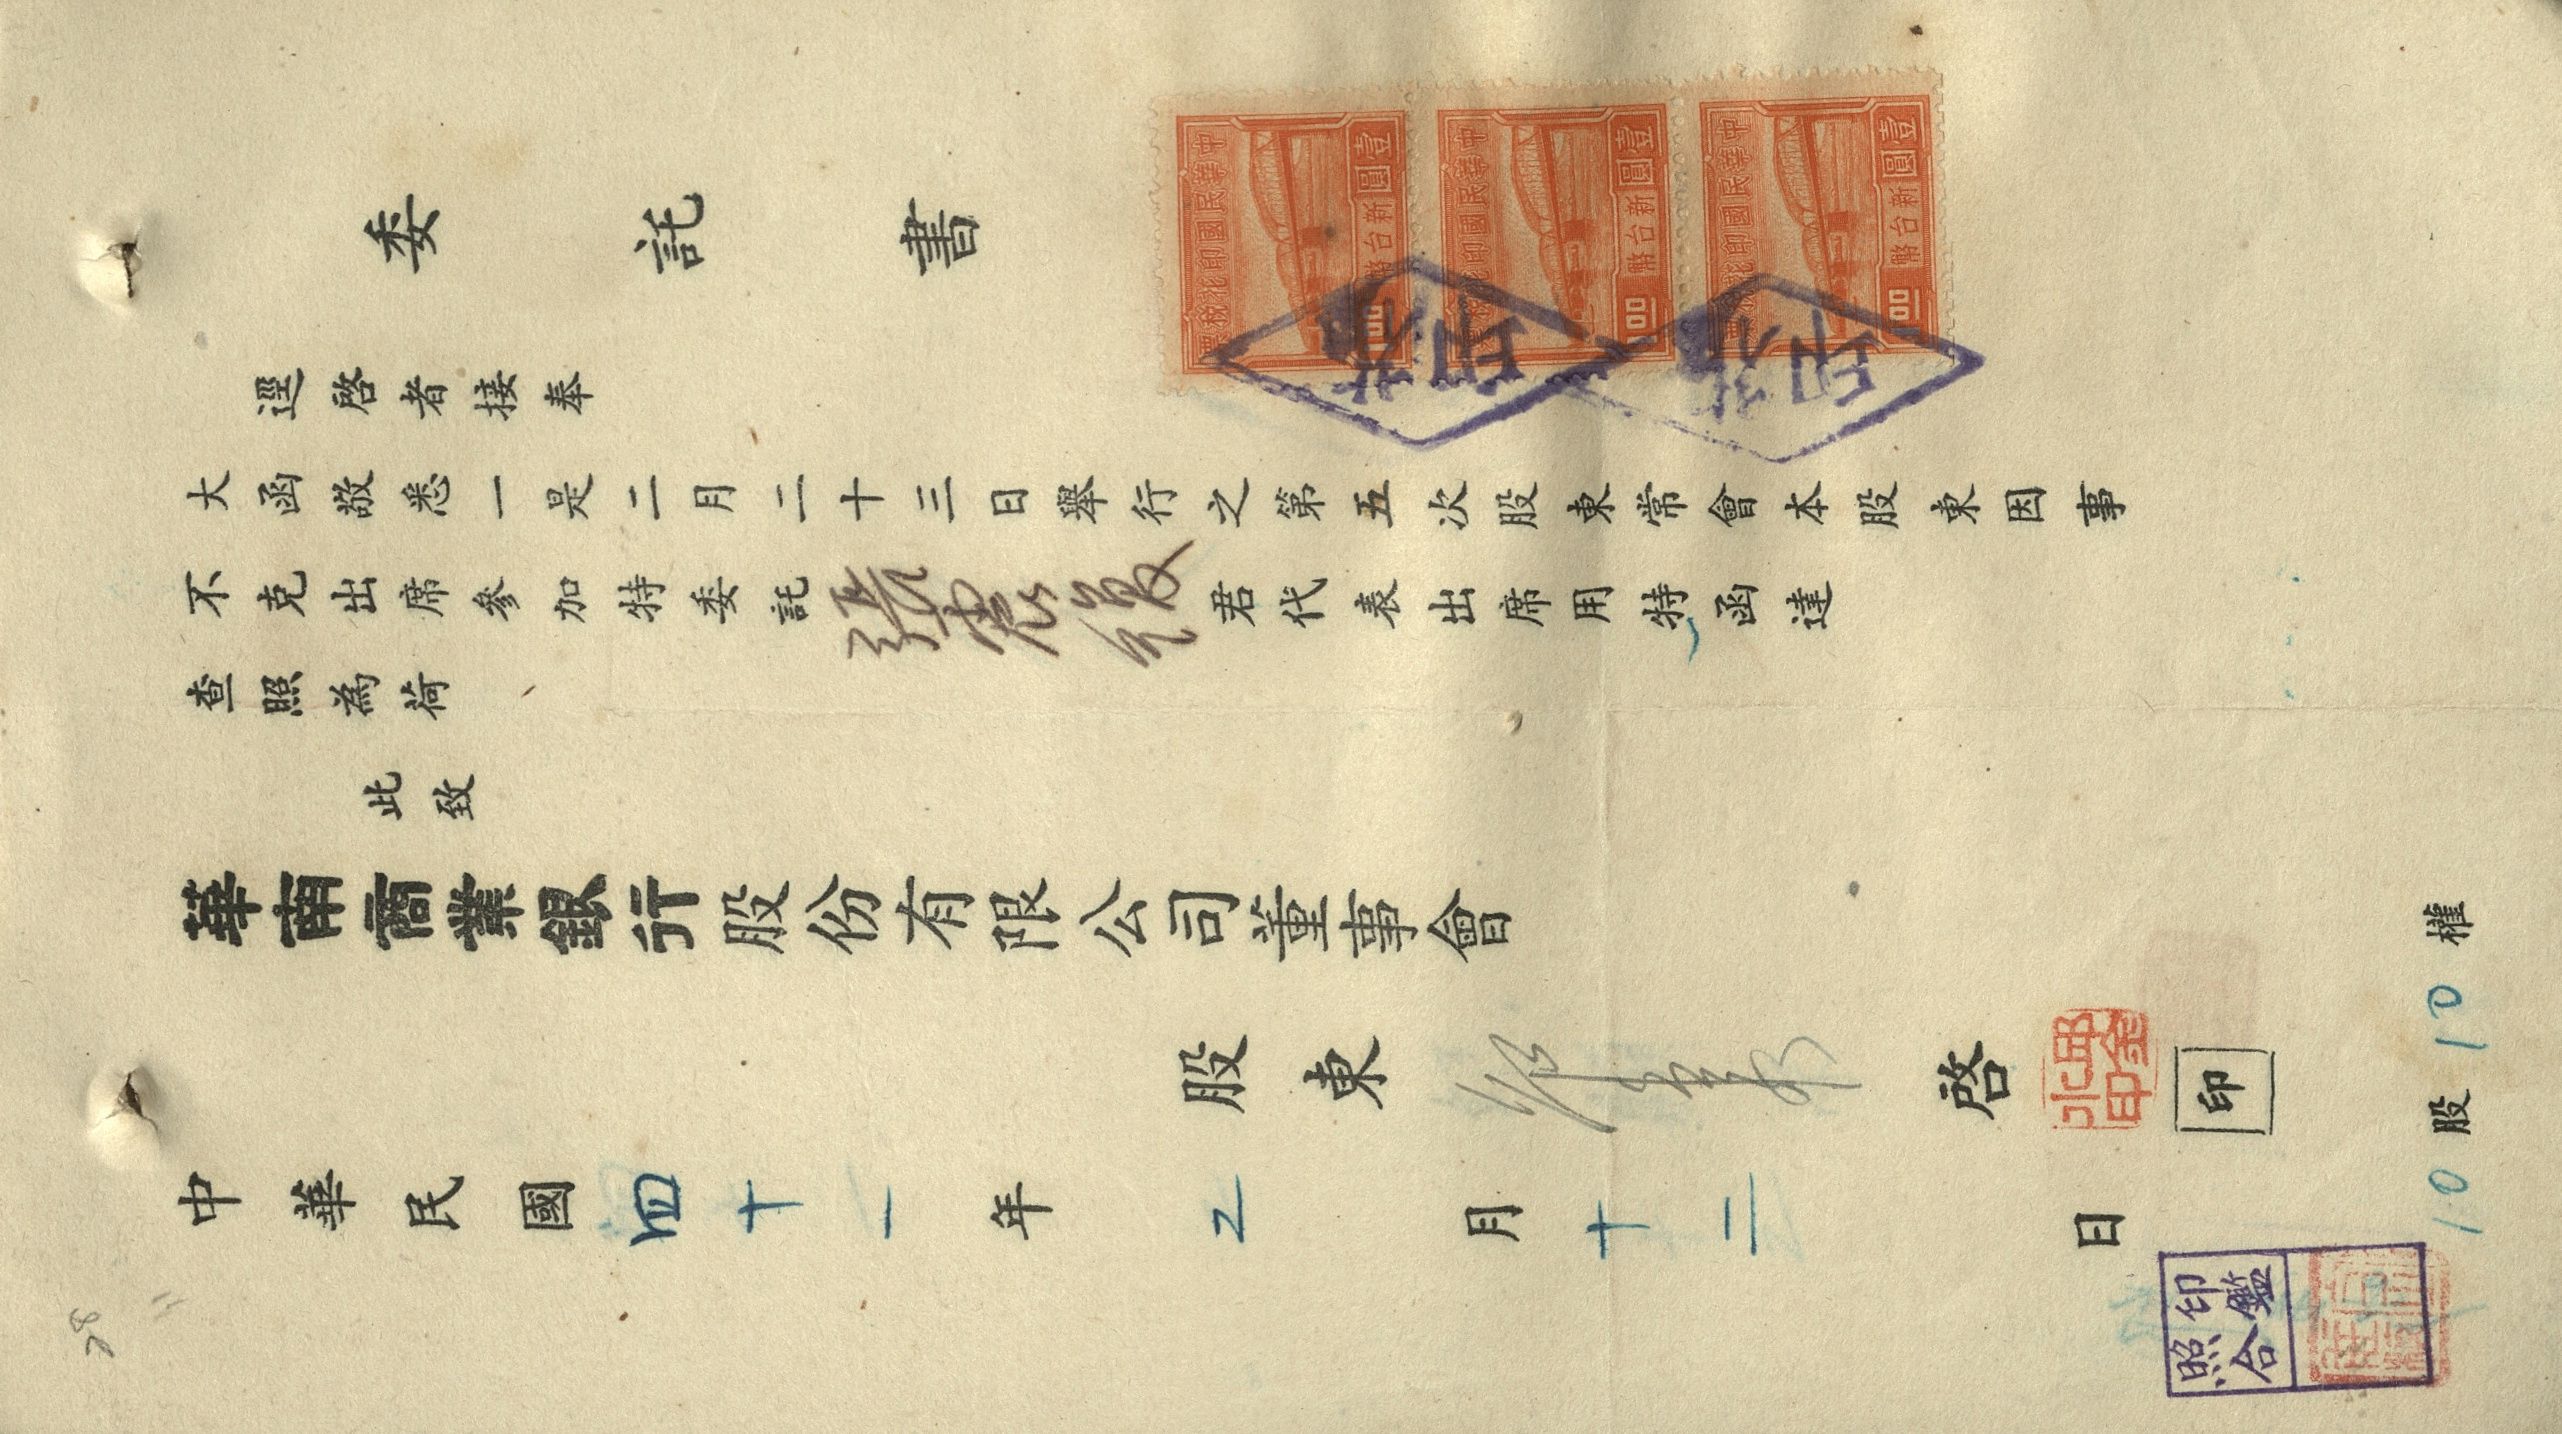 委託書
逕啓者接奉
大函敬悉一是二月二十三日舉行之第五次股東常會本股東因事
不克出席參加特委託君代表出席用特函達
查照為荷
此致
華南商業銀行股份有限公司董事會
股東 啓 印
中華民國四十一年2月十二日
10股10權
中華民國印花稅票
壹圓
新台幣
1.00
中華民國印花稅票
壹圓
新台幣
1.00
中華民國印花稅票
壹圓
新台幣
1.00
印鑑
照合